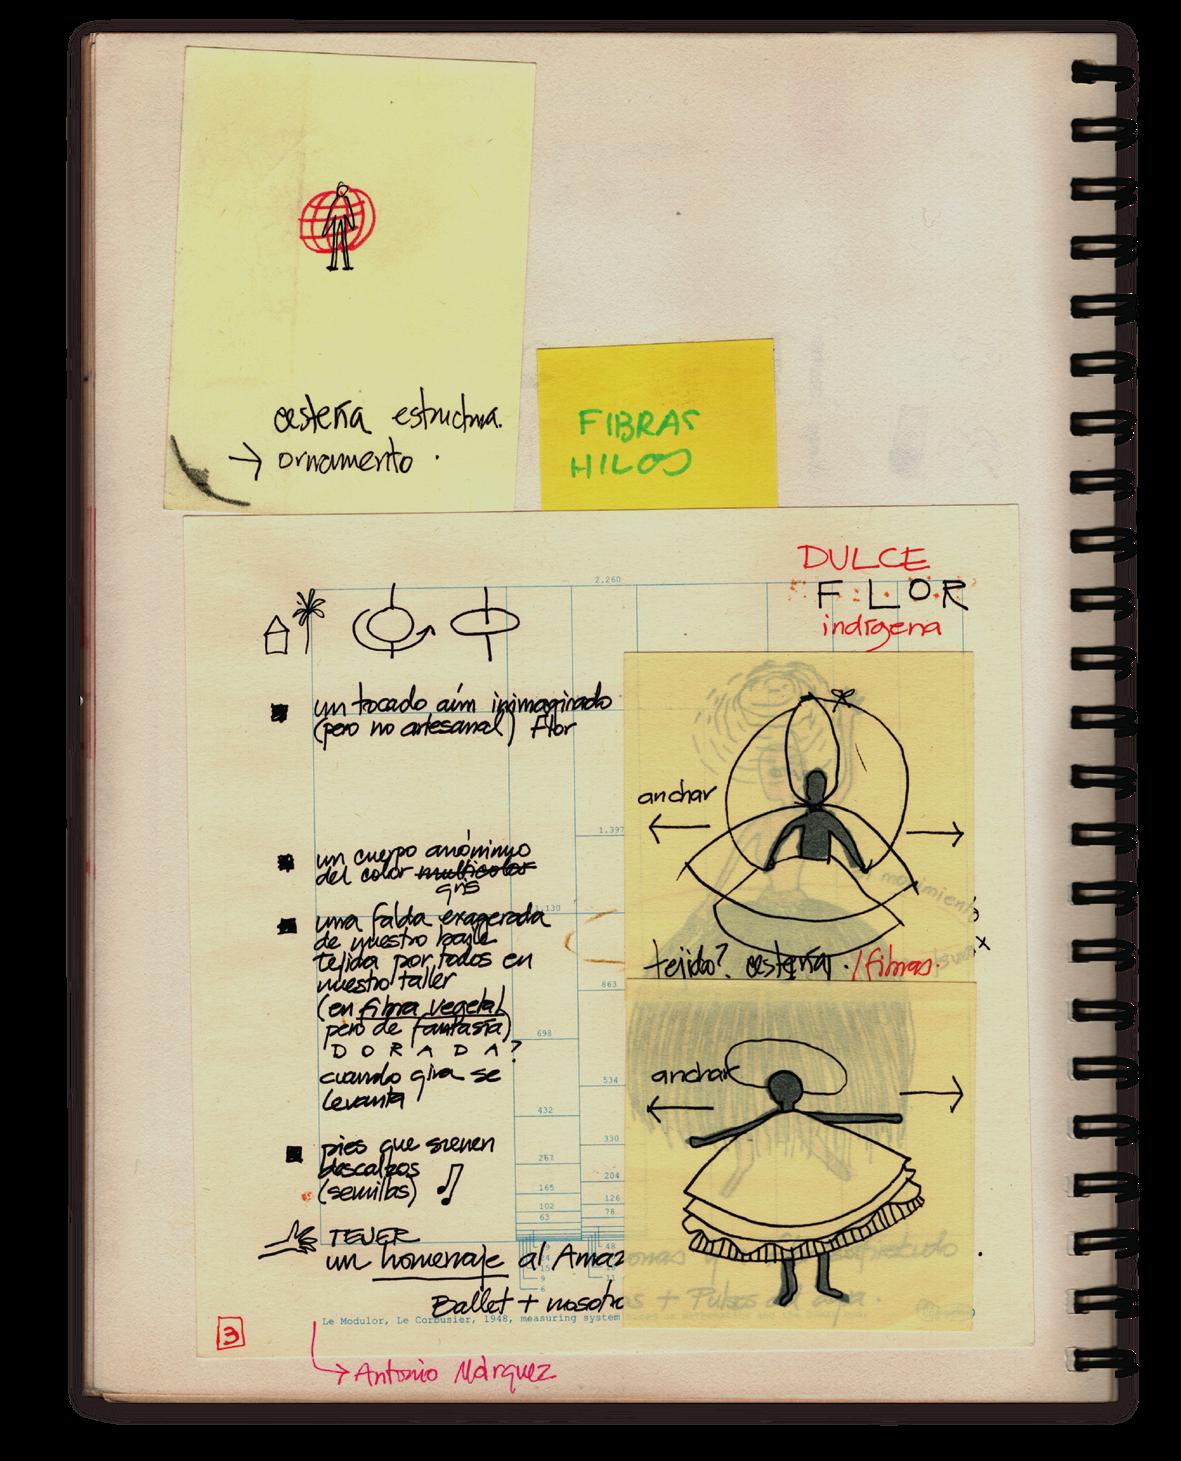 cestería estructura.
→ ornamento .
FIBRAS
HILOS
DULCE
FLOR
indígena
2.260
un tocado aún inimaginado
(pero no artesanal) Flor
anchar
1.397
un cuerpo anónimno
del color multicolor
gris
1.130
movimiento
una falda exagerada
de nuestro baile
tejida por todos en
nuestro taller
(en fibra vegetal
pero de fantasía)
DORADA?
cuando gira se
levanta
tejido? cestería. / fibras.
863
698
534
432
330
267
204
165
126
102
78
63
48
anchar
pies que suenen
descalzos
(semillas)
TEJER
un homenaje al Amaz
Ballet + nosotro
+ Pulsos del
Le Modulor, Le Corbusier, 1948, measuring system
3
→ Antonio Márquez